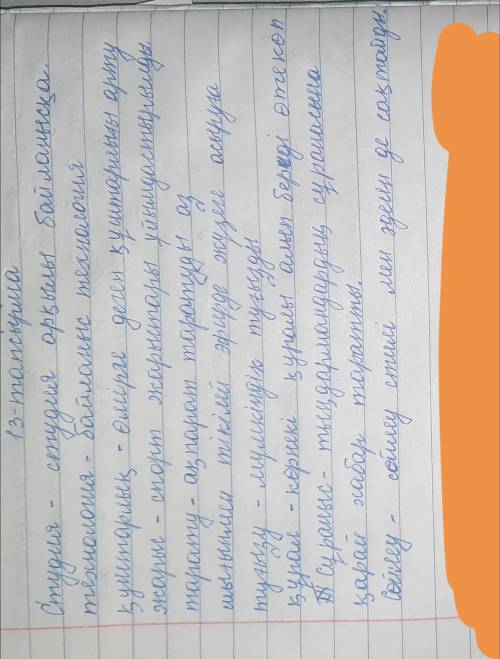 13-тапсырма
Студия - студия арқылы байланысқа.
технология - байланыс технология
құштарлық - өмірге деген құштарлығын арту
жарыс - спорт жарыстары ұйымдастырылды
тарату - ақпарат таратуды аз
шығынмен тікелей эфирде жүзеге асыруға
туғызу - мүмкіндік туғызды
құрал - көрнекі құралы алып береді өте көп
Сұраныс - тыңдармандардың сұранысына
қарай хабар таратты.
Сөйлеу - сөйлеу стилі мен әдебін де сақтайды.